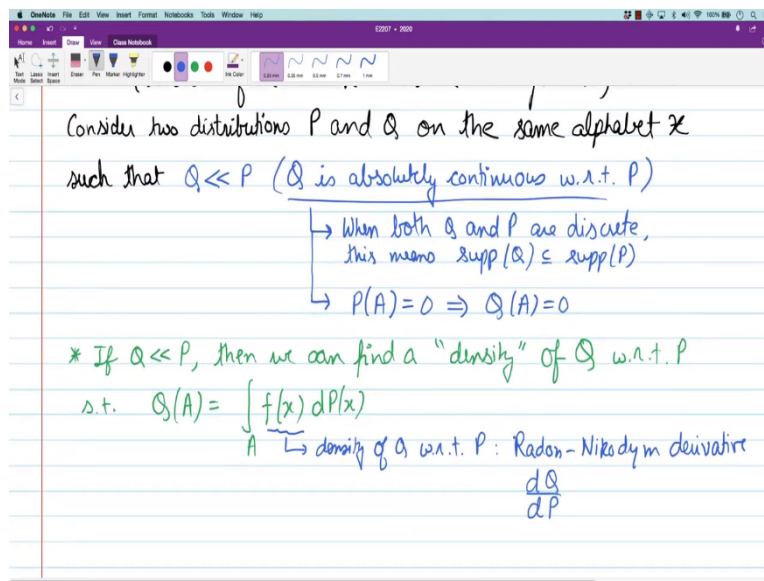 OneNote File Edit View Insert Format Notebooks Tools Window Help 100%
E2207 • 2020
Home Insert Draw View Class Notebook
Text Mode Lasso Select Insert Space Eraser Pen Marker Highlighter Ink Color 0.25 mm 0.35 mm 0.5 mm 0.7 mm 1 mm
Consider two distributions P and Q on the same alphabet X
such that Q << P (Q is absolutely continuous w.r.t. P)
↳ When both Q and P are discrete,
this means supp(Q) ⊆ supp(P)
↳ P(A)=0 ⇒ Q(A)=0
* If Q << P, then we can find a "density" of Q w.r.t. P
s.t. Q(A) = ∫_A f(x) dP(x)
↳ density of Q w.r.t. P : Radon-Nikodym derivative
dQ
dP